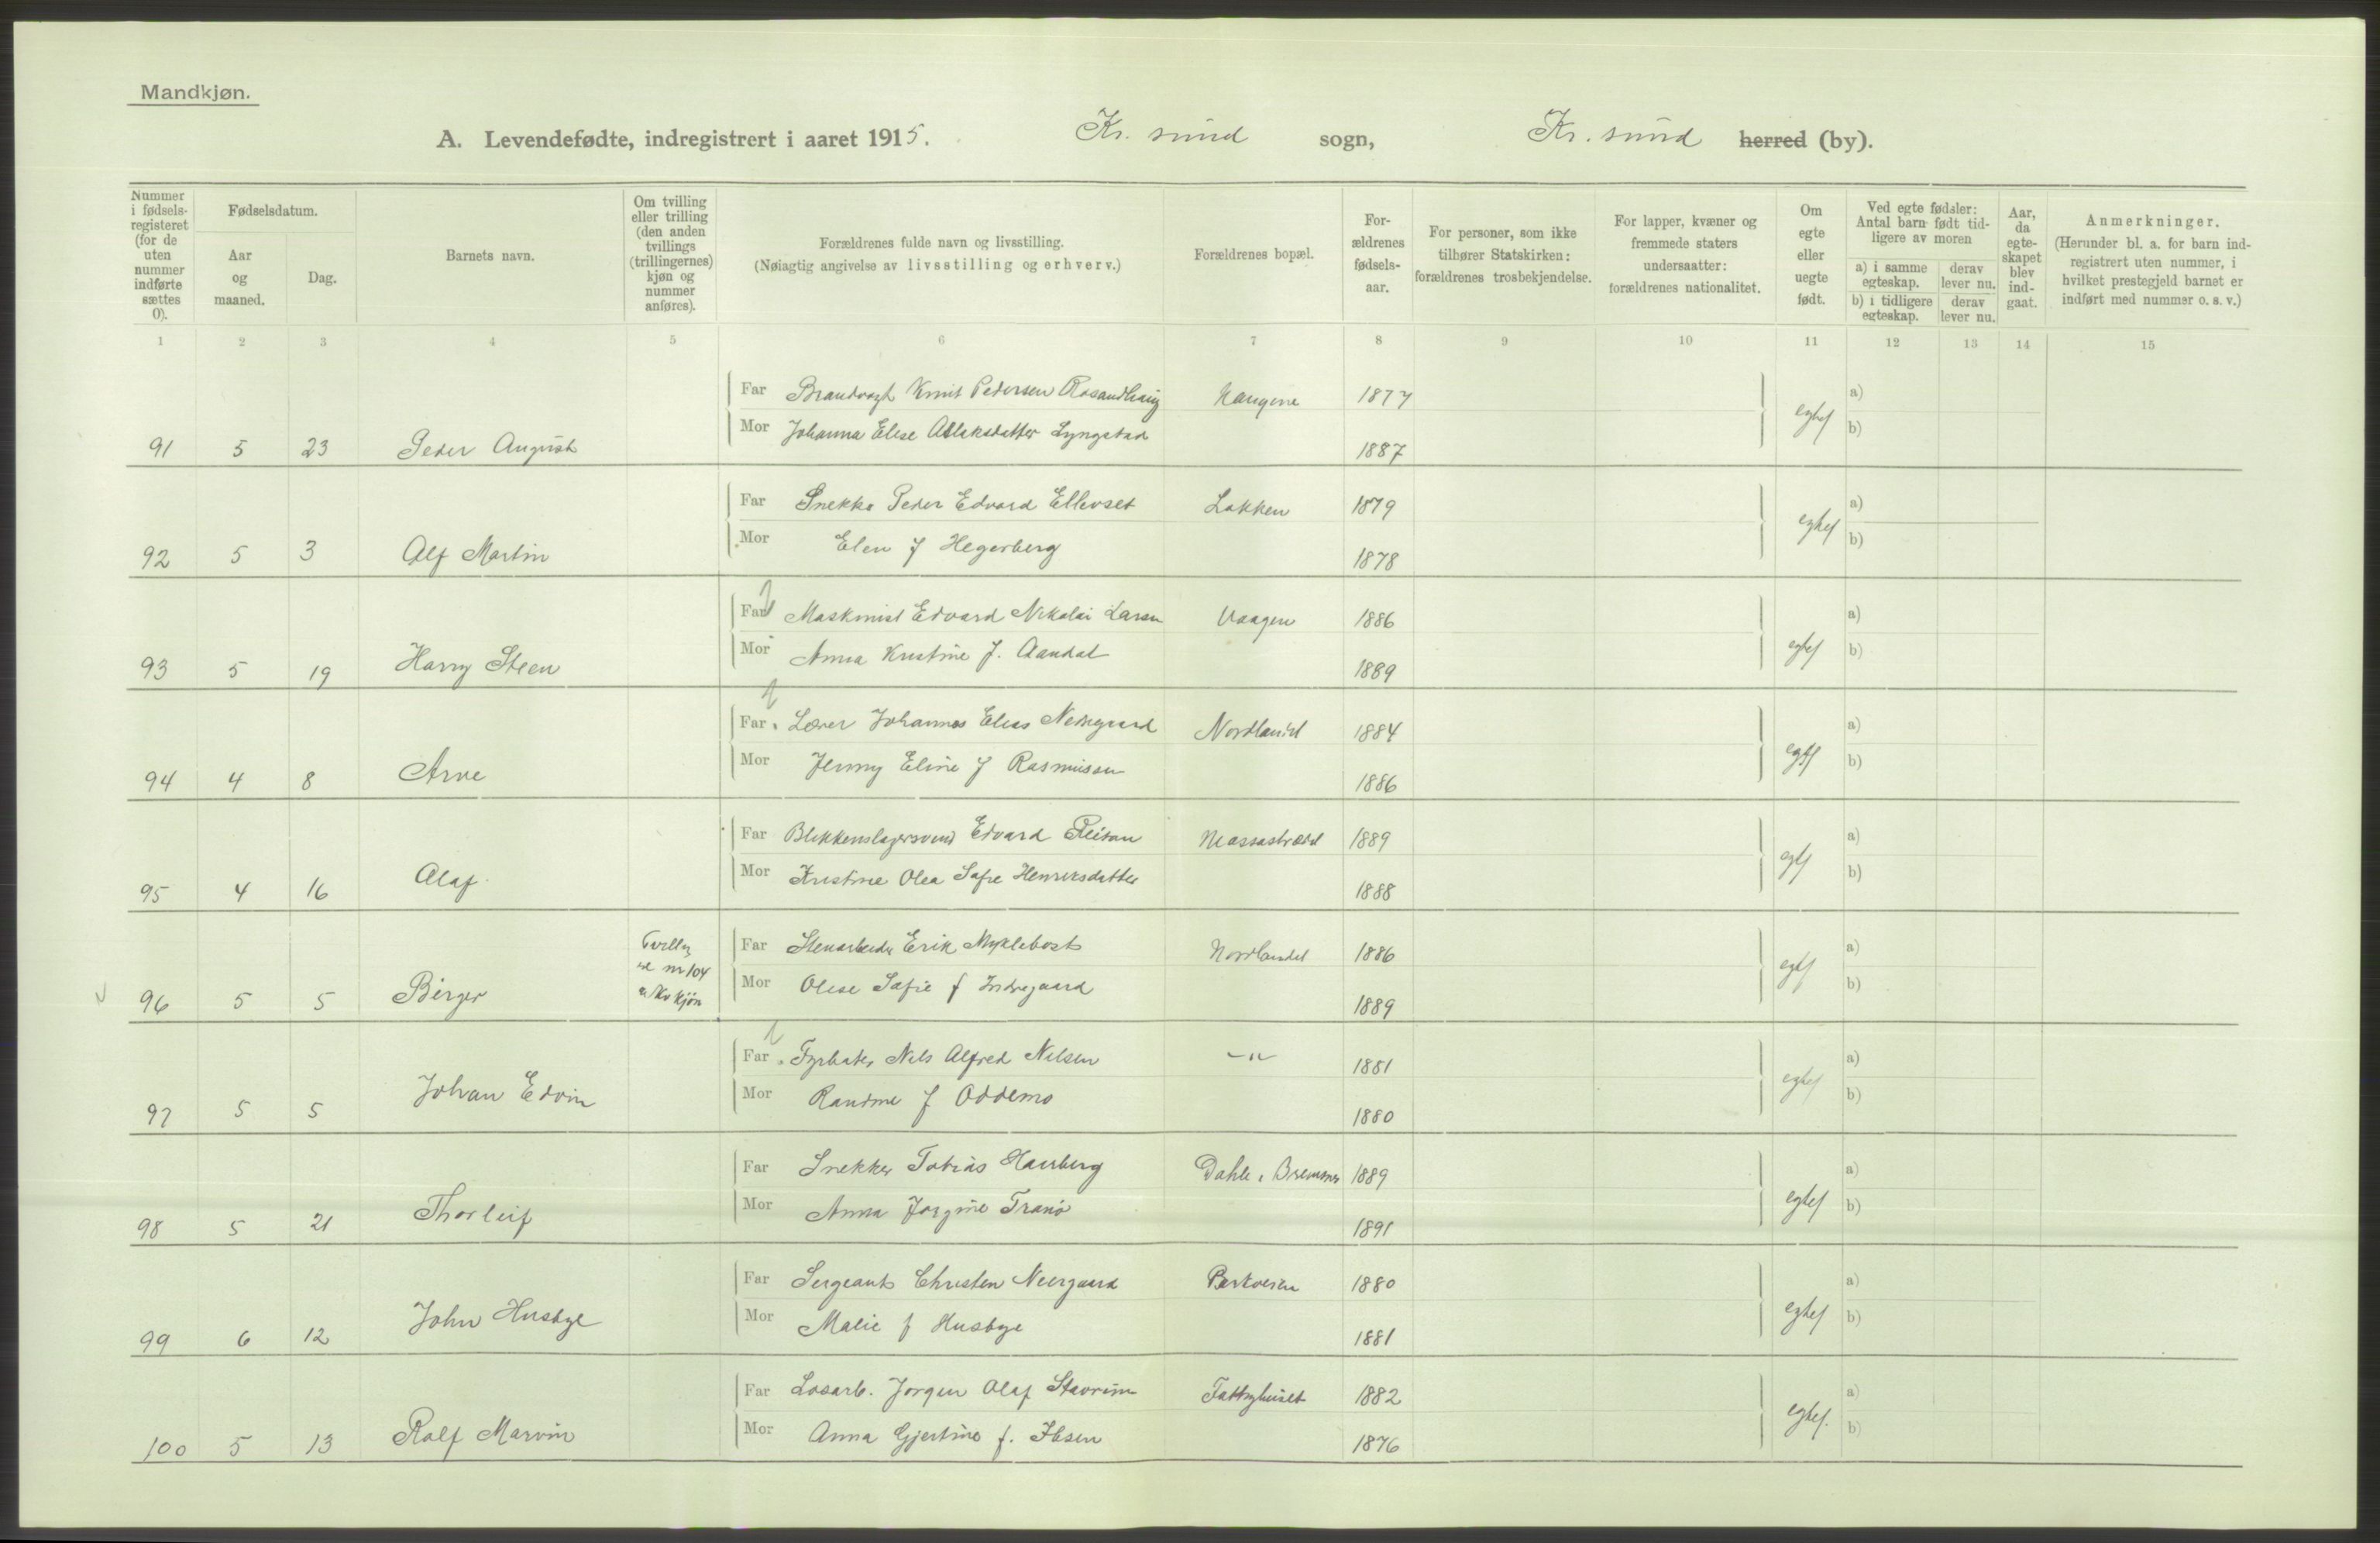 Mandkjøn.
A. Levendefødte, indregistrert i aaret 1915. Kr. sund sogn, Kr. sund herred (by).
Nummer i fødsels-registeret (for de uten nummer indførte sættes 0).
Fødselsdatum.
Aar og maaned.
Dag.
Barnets navn.
Om tvilling eller trilling (den anden tvillings (trillingernes) kjøn og nummer anføres).
Forældrenes fulde navn og livsstilling.
(Nøiagtig angivelse av livsstilling og erhverv.)
Forældrenes bopæl.
For-ældrenes fødsels-aar.
For personer, som ikke tilhører Statskirken: forældrenes trosbekjendelse.
For lapper, kvæner og fremmede staters undersaatter: forældrenes nationalitet.
Om egte eller uegte født.
Ved egte fødsler: Antal barn født tid-ligere av moren
a) i samme egteskap. derav lever nu.
b) i tidligere egteskap. derav lever nu.
Aar, da egte-skapet blev ind-gaat.
Anmerkninger.
(Herunder bl. a. for barn ind-registrert uten nummer, i hvilket prestegjeld barnet er indført med nummer o. s. v.)
1 2 3 4 5 6 7 8 9 10 11 12 13 14 15
Far Brandvagt Knut Pedersen Rosandhaug 1877 a)
Mor Johanna Elise Aslaksdatter Lyngstad egtef b)
91 5 23 Peder August 1887
Far Snekker Peder Edvard Ellevset Løkken 1879 a)
Mor Elen f Hegerberg egtef b)
92 5 3 Alf Martin 1878
Far Maskinist Edvard Nikolai Larsen Vaagen 1886 a)
Mor Anna Kristine f. Aandal egtef b)
93 5 19 Harry Steen 1889
Far Lærer Johannes Elias Nedregaard Nordlandet 1884 a)
Mor Jenny Eline f Rasmussen egtf b)
94 4 8 Arne 1886
Far Blikkenslagersvend Edvard Reitan 1889 a)
Mor Kristine Olea Sofie Henriksdatter egtf b)
95 4 16 Olaf 1888
Tvilling se nr 104 a/kv kjøn
Far Stenarbeider Erik Myklebost Nordlandet 1886 a)
Mor Olise Sofie f Indregaard egtf b)
96 5 5 Birger 1889
Far Fyrbøter Nils Alfred Nilsen -"- 1881 a)
Mor Randine f Oddemo egtef b)
97 5 5 Johan Edvin 1880
Far Snekker Tobias Hauberg Dahle, Bremsnes 1889 a)
Mor Anna Jørgine Tranø egtef b)
98 5 21 Thorleif 1891
Far Sergeant Christen Neergaard Parkveien 1880 a)
Mor Malie f Husbye egtef b)
99 6 12 John Husbye 1881
Far Løsarb. Jørgen Olaf Stavrum Fattighuset 1882 a)
Mor Anna Gjertine f. Ibsen egtef. b)
100 5 13 Rolf Marvin 1876